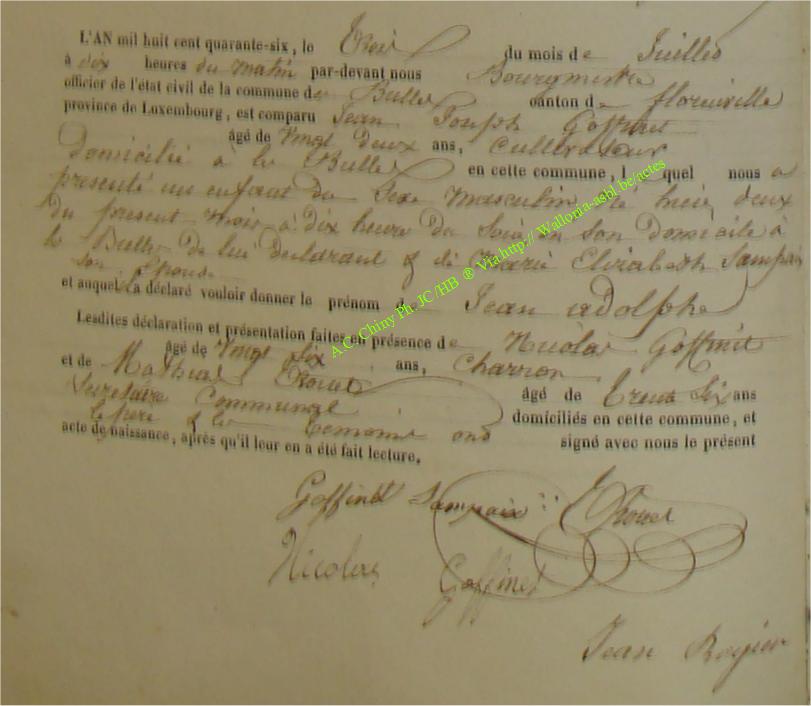 L'AN mil huit cent quarante-six, le Trois du mois de Juillet
à dix heures du matin par-devant nous Bourgmestre
officier de l'état civil de la commune de Bulles canton de florenville
province de Luxembourg, est comparu Jean Joseph Goffinet
âgé de Vingt deux ans, Cultivateur
Domicilié à les Bulles en cette commune, lequel nous a
présenté un enfant du Sexe masculin né hier deux
du présent mois à dix heure du Soir en son domicile à
les Bulles de lui déclarant & de Marie Elisabeth Sampaix
son Epouse
et auquel il a déclaré vouloir donner le prénom de Jean adolphe
Lesdites déclaration et présentation faites en présence de Nicolas Goffinet
âgé de Vingt Six ans, Charron
et de Mathias âgé de Trente Six ans
Secretaire Communal domiciliés en cette commune, et
le père & les temoins ont signé avec nous le présent
acte de naissance, après qu'il leur en a été fait lecture.
Goffinet Sampaix
Nicolas Goffinet
Jean
A.C. Chiny Ph. JC/HB ® Via http:// Wallonia-asbl.be/actes